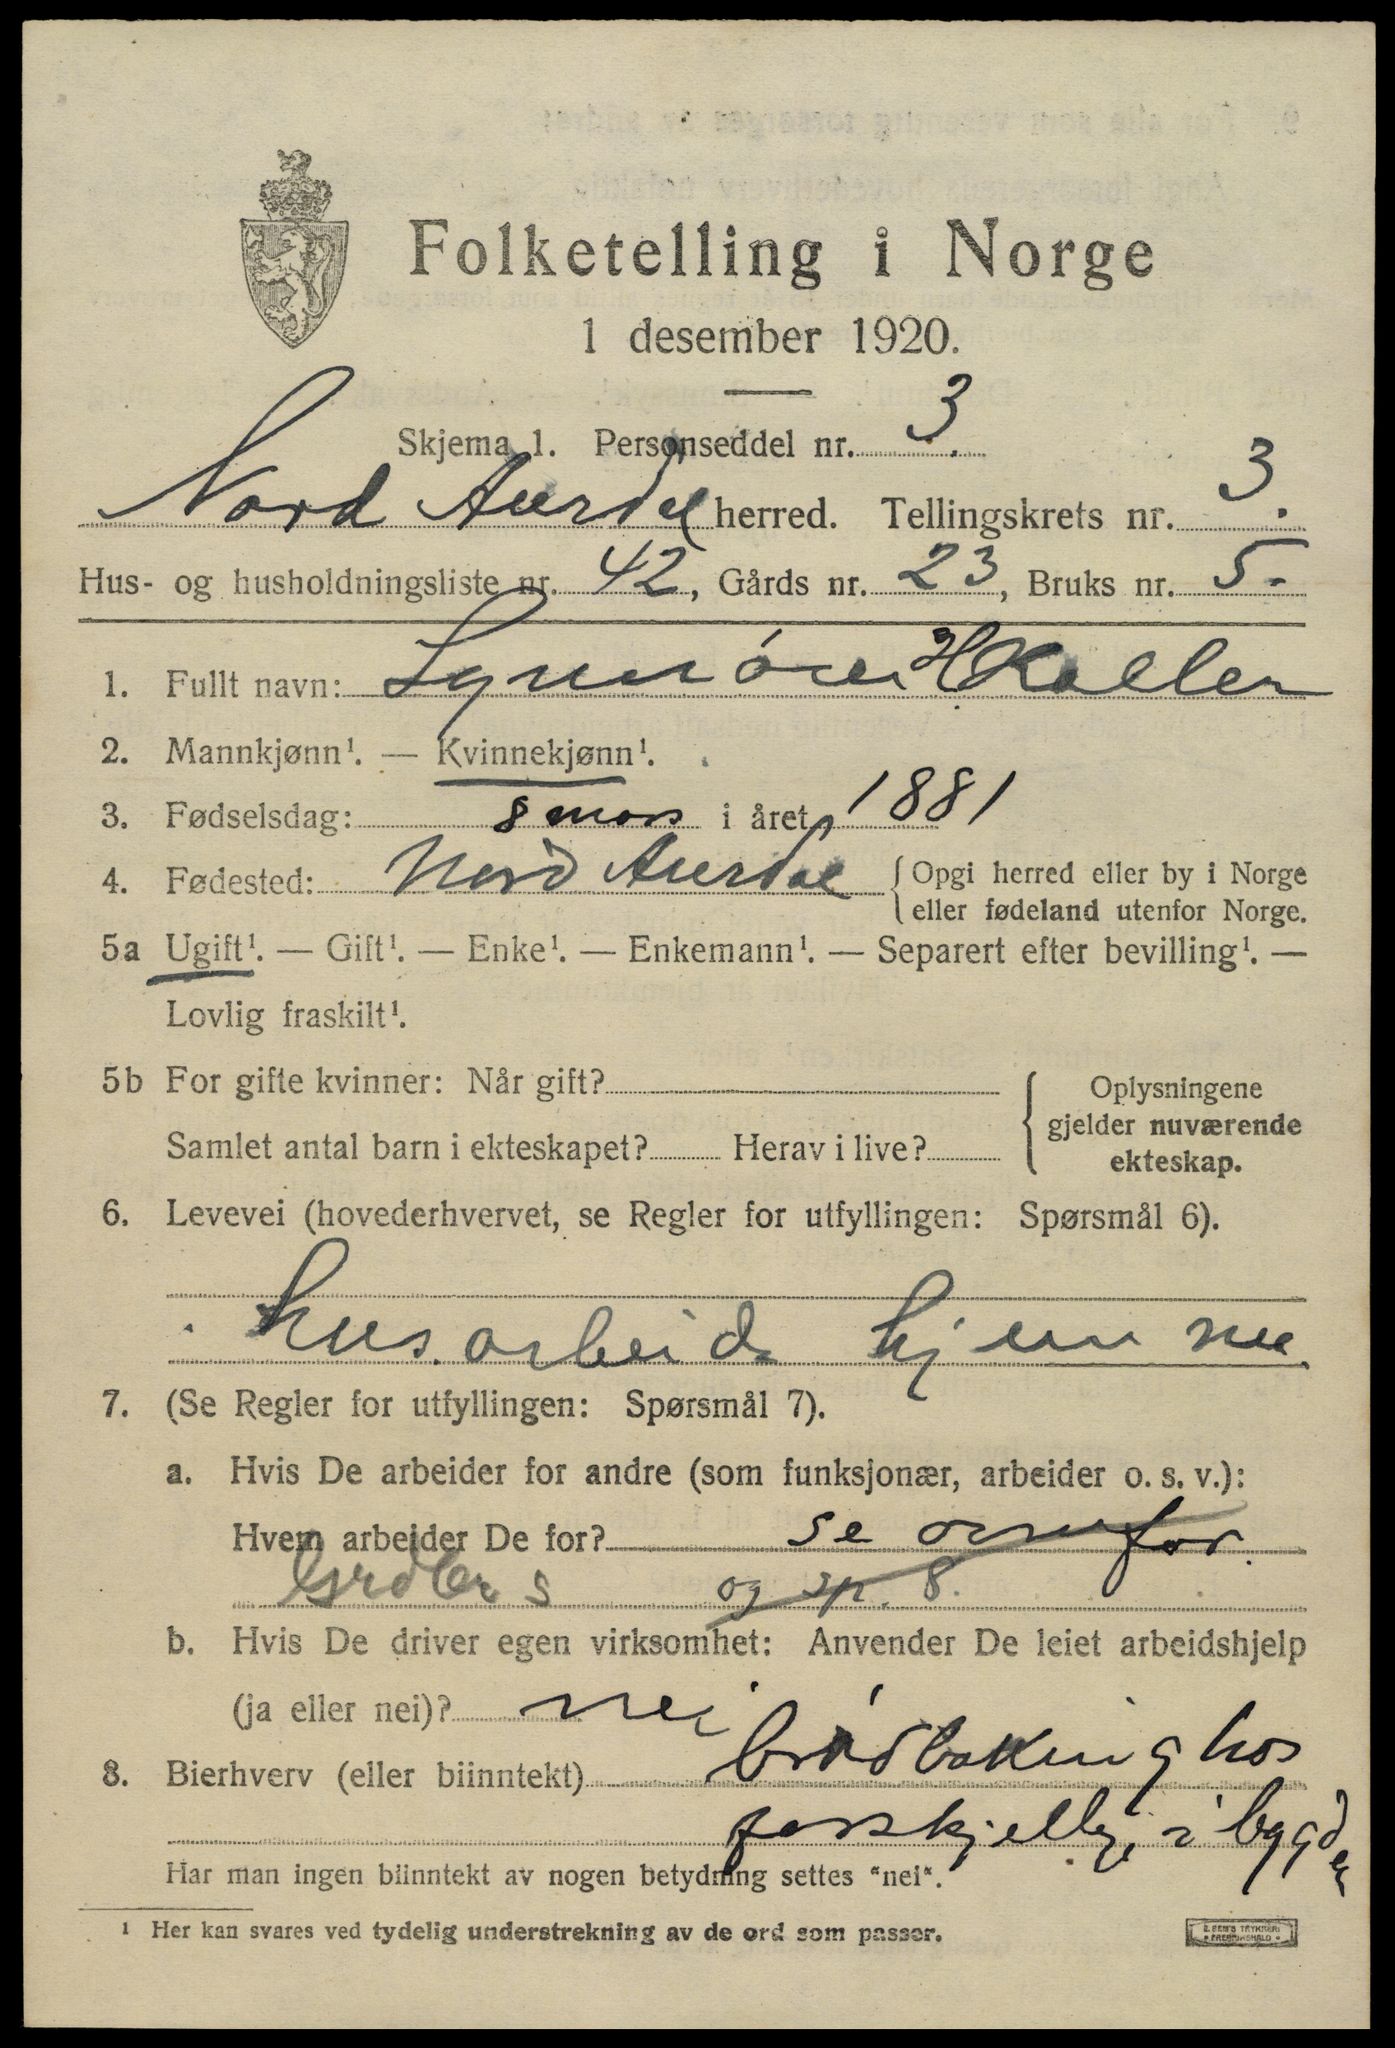 Folketelling i Norge
1 desember 1920.
Skjema 1. Personseddel nr. 3.
Nord Aurdal herred. Tellingskrets nr. 3.
Hus- og husholdningsliste nr. 42, Gårds nr. 23, Bruks nr. 5.
1. Fullt navn: Synnöve H Kallen
2. Mannkjønn¹. — Kvinnekjønn¹.
3. Fødselsdag: 8 mars i året 1881
4. Fødested: Nord Aurdal { Opgi herred eller by i Norge
eller fødeland utenfor Norge.
5a Ugift¹. — Gift¹. — Enke¹. — Enkemann¹. — Separert efter bevilling¹. —
Lovlig fraskilt¹.
5b For gifte kvinner: Når gift?
Samlet antal barn i ekteskapet? Herav i live?
Oplysningene
gjelder nuværende
ekteskap.
6. Levevei (hovederhvervet, se Regler for utfyllingen: Spørsmål 6).
husarbeide hjemme
7. (Se Regler for utfyllingen: Spørsmål 7).
a. Hvis De arbeider for andre (som funksjonær, arbeider o. s. v.):
Hvem arbeider De for? se ovenfor.
og sp. 8.
b. Hvis De driver egen virksomhet: Anvender De leiet arbeidshjelp
(ja eller nei)? nei
8. Bierhverv (eller biinntekt) brödbaking hos
forskjellige i bygden
Har man ingen biinntekt av nogen betydning settes "nei".
¹ Her kan svares ved tydelig understrekning av de ord som passer.